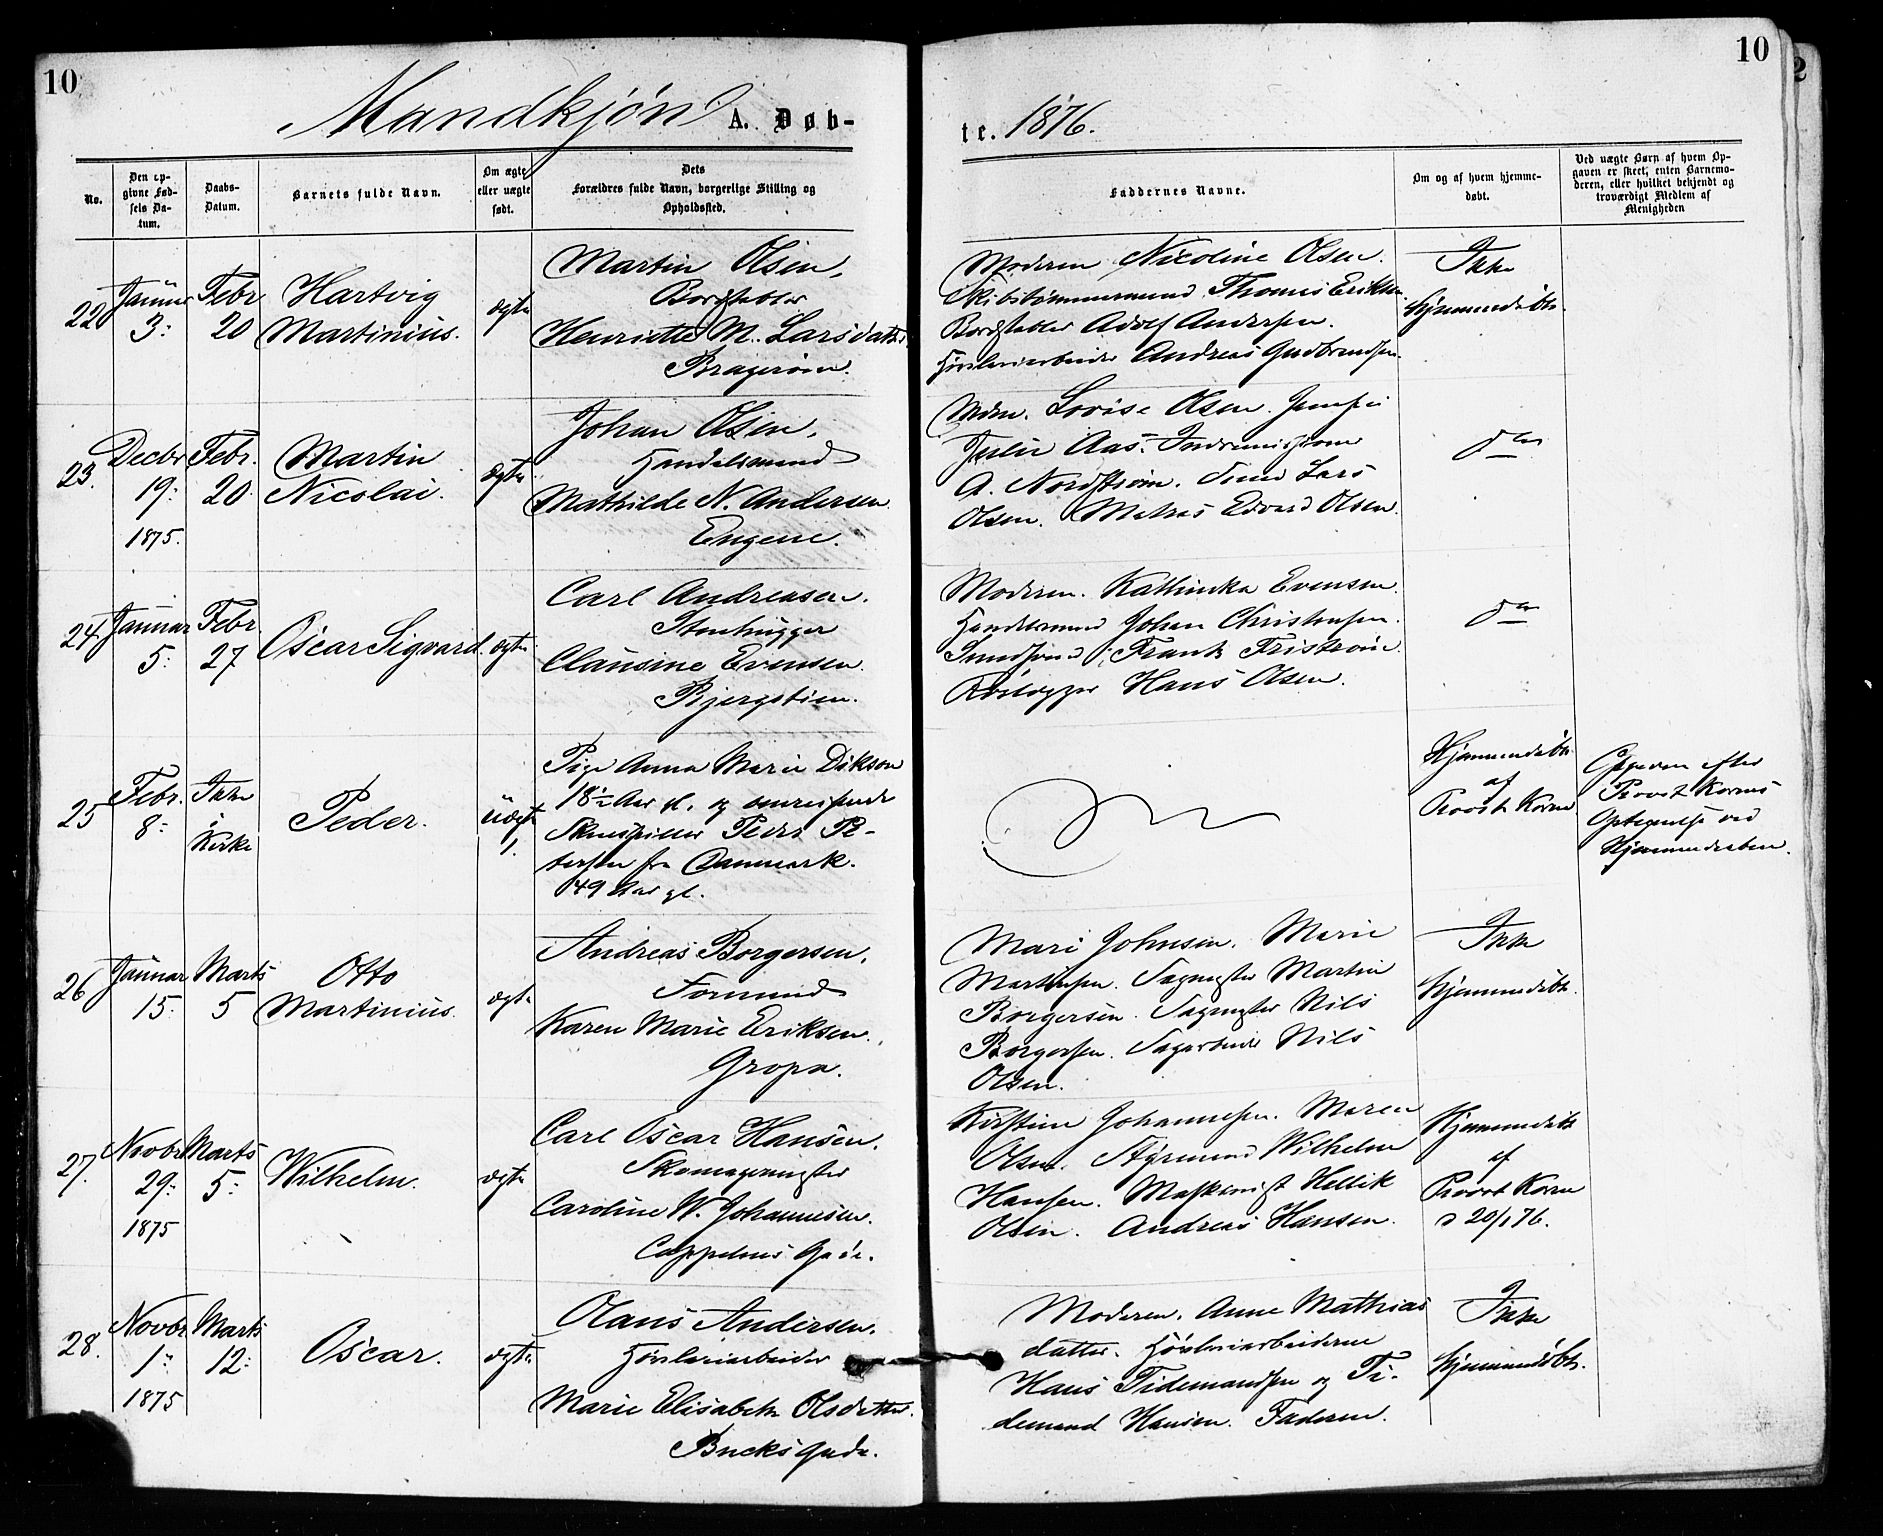 10
10
Mandkjön A. Døb-
te. 1876.
No.
Den op-
givne Fød-
sels Da-
tum.
Daabs-
Datum.
Barnets fulde Navn.
Om ægte
eller uægte
født.
Dets
Forældres fulde Navn, borgerlige Stilling og
Opholdssted.
Faddernes Navne.
Om og af hvem hjemme-
døbt.
Ved uægte Børn af hvem Op-
gaven er skeet, enten Barnemo-
deren, eller hvilket bekjendt og
troværdigt Medlem af
Menigheden
22
Januar
3:
Febr
20
Hartvig
Martinius.
ægte
Martin Olsen,
Bordstabler
Henriette M. Larsdatter
Bragerøen.
Moderen Nicoline Olsen.
Skibstømmermand Thomas Eriksen
Bordstabler Adolf Andersen.
Høvleriarbeider Andreas Gudbrandsen.
Ikke
Hjemmedøbt.
23.
Decbr
19:
1875.
Febr.
20
Martin
Nicolai.
ægte
Johan Olsen,
Handelsmand
Mathilde N. Andersen
Engene.
Mdm. Lovise Olsen. Jomfru
Julie Aas.
A. Nordstrøm. Lars
Olsen. Edvard Olsen.
do
24.
Januar
5:
Febr.
27
Oscar Sigvard.
ægte
Carl Andreasen.
Stenhugger
Clausine Evensen.
Bjergstien.
Moderen. Kathinka Evensen
Handelsmand Johan Christensen.
Frank Fristrøm.
Hans Olsen.
do
25
Febr.
8:
Ikke
i
Kirke
Peder.
Uægte
Pige Anna Marie Dikson
18½ Aar gl. og
Skuespiller Peder Pe-
tersen fra Danmark.
49 Aar gl.
Hjemmedøbt
af
Provst Koren
Opgaven efter
Provst Korens
Optegnelse ved
Hjemmedaaben.
26
Januar
15:
Marts
5
Otto
Martinius.
ægte
Andreas Borgersen,
Formand
Karen Marie Eriksen.
Gropa.
Mari Johnsen. Marie
Martinsen. Sagmester Martin
Borgersen. Sagmester Nils
Borgersen. Sagarbeider Nils
Olsen.
Ikke
Hjemmedøbt.
27.
Novbr
29:
1875
Marts
5:
Wilhelm.
ægte
Carl Oscar Hansen.
Skomagermester
Caroline W. Johannesen.
Cappelens Gade.
Kirstine Johannesen. Maren
Olsen. Styrmand Wilhelm
Hansen. Maskinist Hellik
Olsen. Andreas Hansen.
Hjemmedøbt
af
Provst Koren
d 20/1 76.
28.
Novbr
1:
1875
Marts
12:
Oscar.
ægte
Olaus Andersen.
Høvleriarbeider
Marie Elisabeth Olsdatter.
Bucks Gade.
Moderen. Anne Mathias
datter. Høvleriarbeiderne
Hans Tidemandsen og Ti-
demand Hansen. Faderen.
Ikke
Hjemmedøbt.